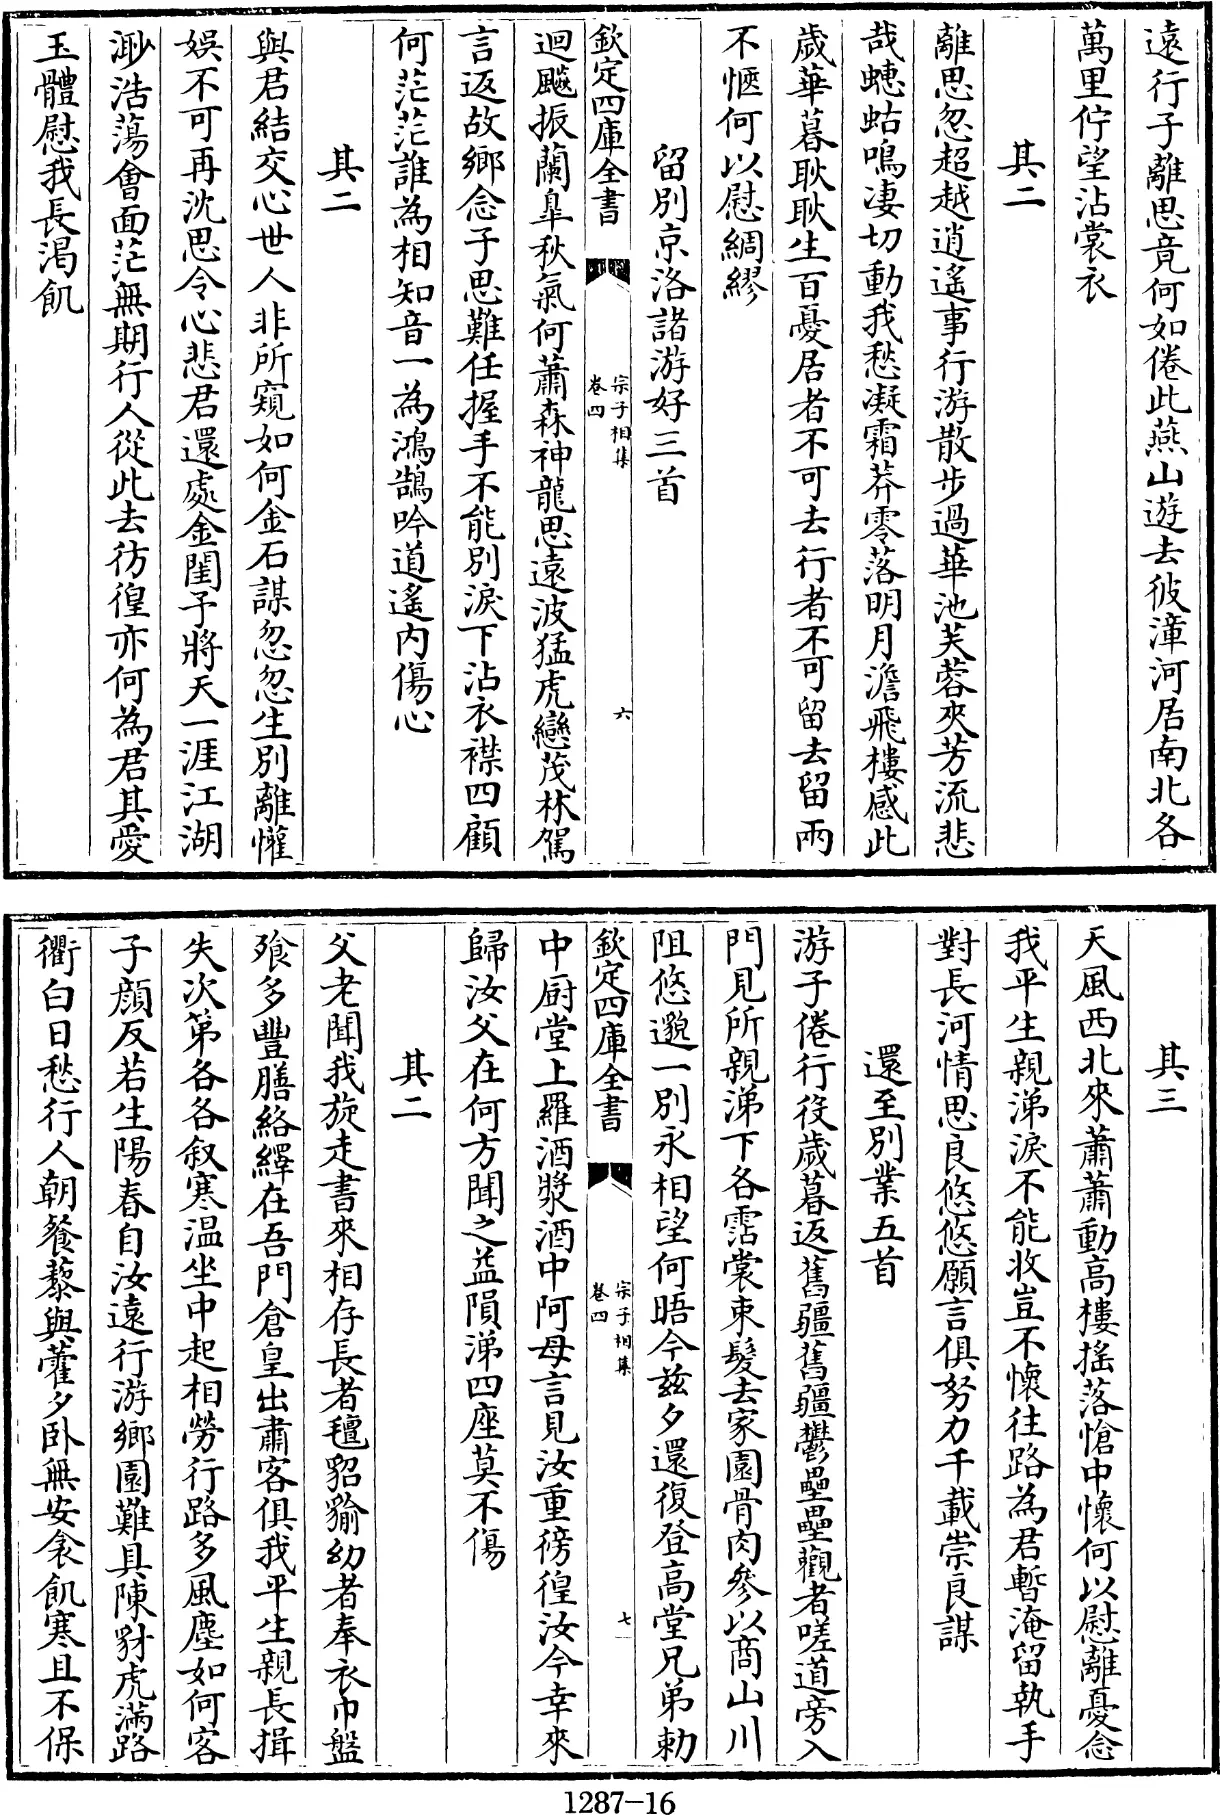 遠行子離思竟何如倦此燕山遊去彼漳河居南北各
萬里佇望沾裳衣
其二
離思忽超越逍遙事行游散步過華池芙蓉夾芳流悲
哉蟪蛄鳴淒切動我愁凝霜莽零落明月澹飛樓感此
歲華暮耿耿生百憂居者不可去行者不可留去留兩
不愜何以慰綢繆
留別京洛諸游好三首
欽定四庫全書
宗子相集
卷四
六
迴飇振蘭臯秋氣何蕭森神龍思遠波猛虎戀茂林駕
言返故鄉念子思難任握手不能別淚下沾衣襟四顧
何茫茫誰為相知音一為鴻鵠吟道遙內傷心
其二
與君結交心世人非所窺如何金石謀忽忽生別離懽
娛不可再沈思令心悲君還處金閨予將天一涯江湖
渺浩蕩會面茫無期行人從此去彷徨亦何為君其愛
玉體慰我長渴飢
其三
天風西北來蕭蕭動高樓搖落愴中懷何以慰離憂念
我平生親涕淚不能收豈不懷往路為君暫淹留執手
對長河情思良悠悠願言俱努力千載崇良謀
還至別業五首
游子倦行役歲暮返舊疆舊疆鬱壘壘觀者嗟道旁入
門見所親涕下各霑裳束髮去家園骨肉參以商山川
阻悠邈一別永相望何晤今茲夕還復登高堂兄弟勅
欽定四庫全書
宗子相集
卷四
七
中厨堂上羅酒漿酒中阿母言見汝重徬徨汝今幸來
歸汝父在何方聞之益隕涕四座莫不傷
其二
父老聞我旋走書來相存長者氊貂貐幼者奉衣巾盤
飱多豐膳絡繹在吾門倉皇出肅客俱我平生親長揖
失次第各各叙寒温坐中起相勞行路多風塵如何客
子顔反若生陽春自汝遠行游鄉園難具陳豺虎滿路
衢白日愁行人朝餐藜與藿夕卧無安衾飢寒且不保
1287-16